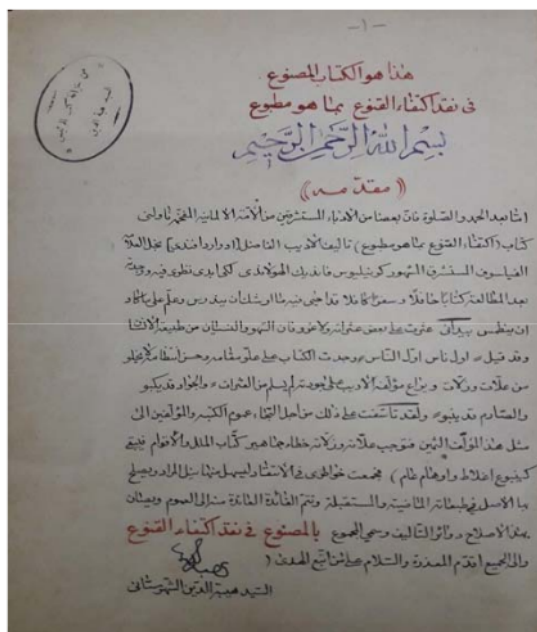 -١-
هذا هو الكتاب المصنوع
في نقد اكتفاء القنوع بما هو مطبوع
بسم الله الرحمن الرحيم
((مقدمه))
امّا بعد الحمد والصلوة فان بعضا من الادباء المستشرقين من الامة الالمانية المفخمة ناولني
كتاب (اكتفاء القنوع بما هو مطبوع) تاليف الاديب الفاضل [ادوارد افندي] نجل العلامة
الفيلسوف المستشرق المشهور كرنيليوس فانديك الهولاندي لكى ابدى نظري فيه وجدته
بعد المطالعة كتابا حافلا وسفرا كاملا قد احيى فيه ما اوشك ان يندرس وعلم على ما كاد
ان ينطمس بيد ان عثرت على بعض عثراته ولا غرو فان السهو والنسيان من طبيعة الانسان
وقد قيل اول ناس اول الناس وجدت الكتاب على علو مقامه وحسن انتظامه لم يخلو
من علات وزلات ويراع مؤلفه الاديب على جودته لم يسلم من العثرات والجواد قد يكبو
والصارم قد ينبو ولقد تاسفت على ذلك من اجل التجاء عموم الكتبة والمؤلفين الى
مثل هذا المؤلف الثمين فتوجب علاته وزلاته خطاء جماهير كتاب الملل والاقوام فيبقى
كينبوع اغلاط واوهام عام) فجمعت خواطري في الانتقاد ليسهل منها سبل المراد ويصلح
بها الاصل في طبعاته الثانية والمستقبلة وتتم الفائدة العائدة منه الى العموم ويصان
بهذا الاصلاح دوائر التاليف وسمي المجموع بالمصنوع في نقد اكتفاء القنوع
والى الجميع اقدم المعذرة والسلام على من اتبع الهدى
السيد هبة الدين الشهرستاني